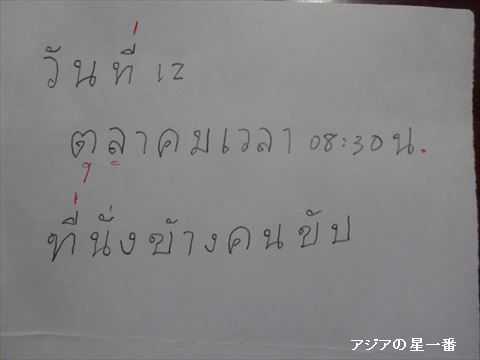 วันที่ 12
ตุลาคมเวลา 08:30น.
ที่นั่งข้างคนขับ
アジアの星一番